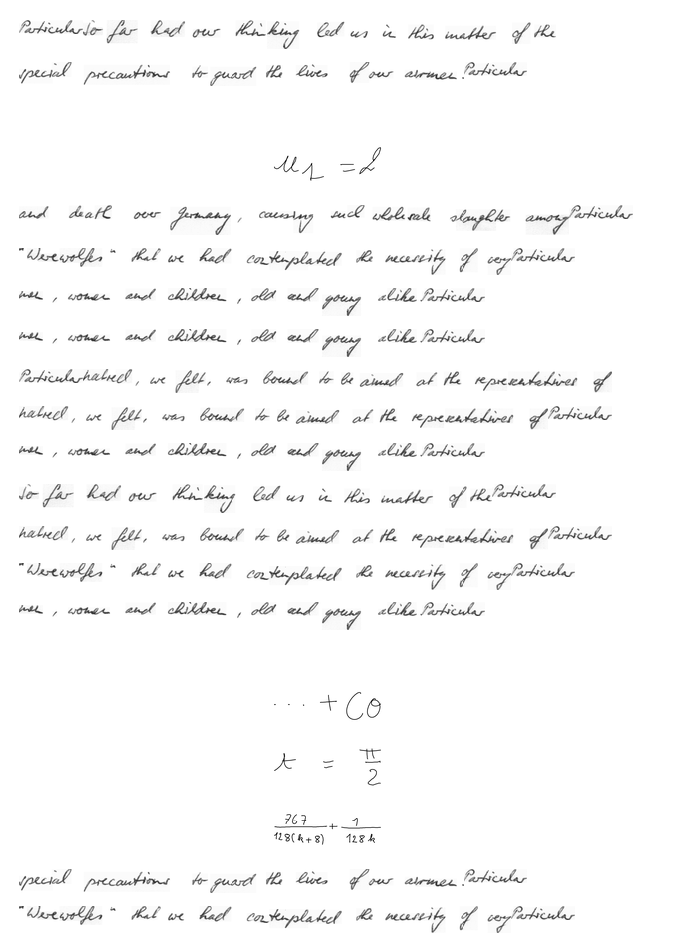 ParticularSo far had our thinking led us in this matter of the
special precautions to guard the lives of our airmen.Particular
u_1 = 2
and death over Germany, causing such wholesale slaughter amongParticular
"Werewolfes" that we had contemplated the necessity of veryParticular
men, women and children, old and young alikeParticular
men, women and children, old and young alikeParticular
Particularhatred, we felt, was bound to be aimed at the representatives of
hatred, we felt, was bound to be aimed at the representatives ofParticular
men, women and children, old and young alikeParticular
So far had our thinking led us in this matter of theParticular
hatred, we felt, was bound to be aimed at the representatives ofParticular
"Werewolfes" that we had contemplated the necessity of veryParticular
men, women and children, old and young alikeParticular
... + C0
t = π/2
767/128(k+8) + 1/128k
special precautions to guard the lives of our airmen.Particular
"Werewolfes" that we had contemplated the necessity of veryParticular